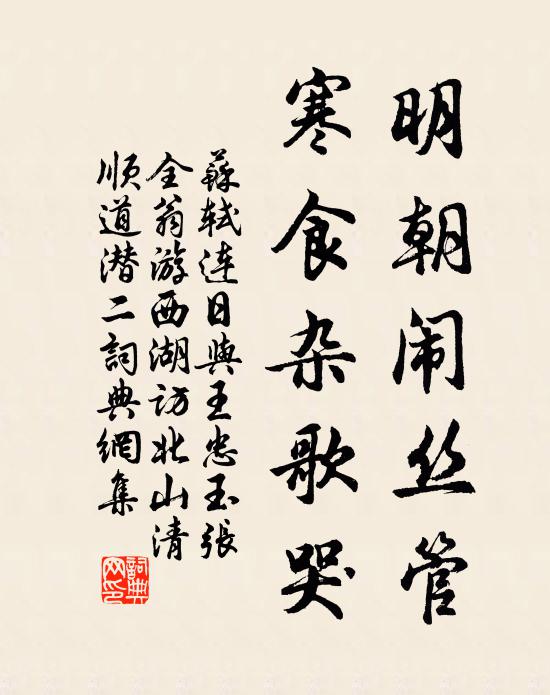 明朝闹丝管
寒食杂歌哭
苏轼连日與王忠玉張
全翁游西湖访北山清
顺道潜二詞典網集
詞典网印